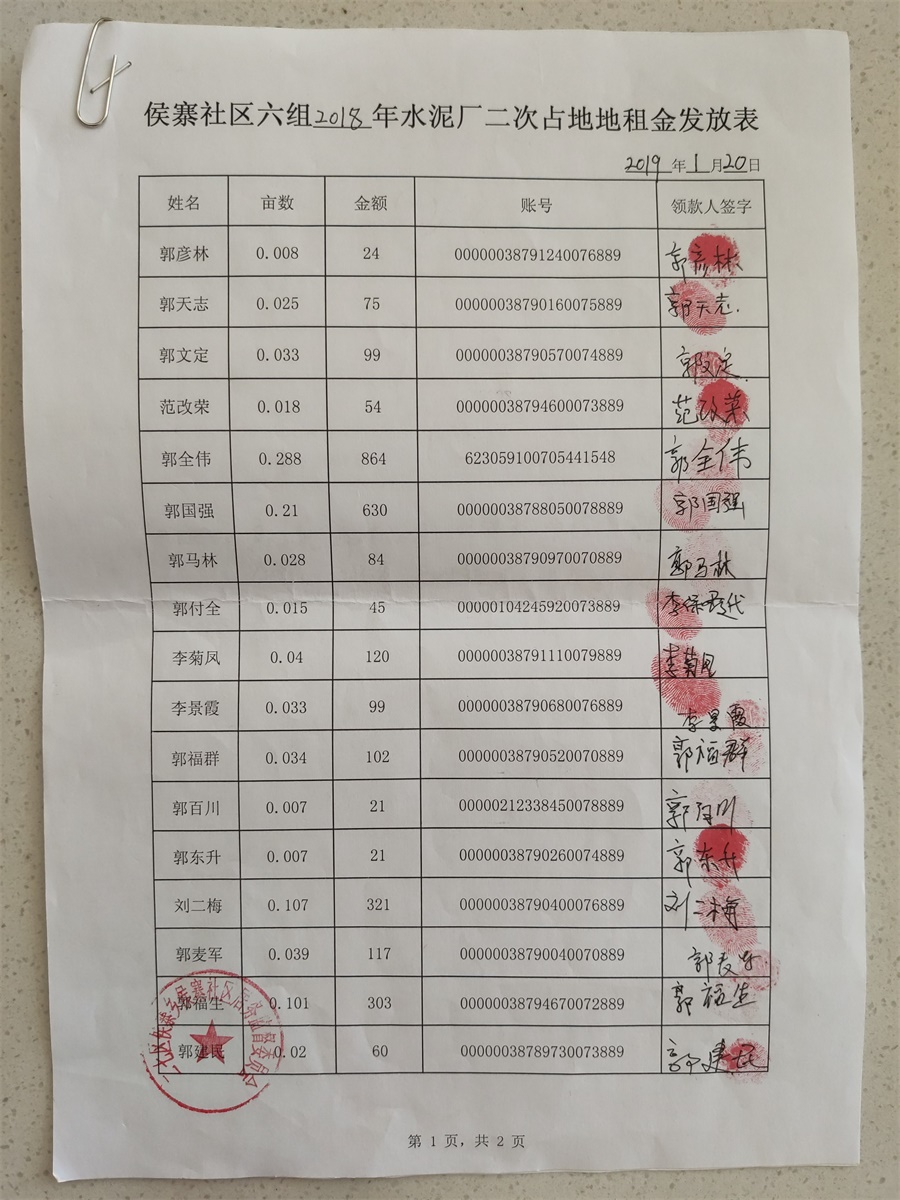 侯寨社区六组2018年水泥厂二次占地地租金发放表
2019年1月20日
姓名 亩数 金额 账号 领款人签字
郭彦林 0.008 24 00000038791240076889 郭彦林
郭天志 0.025 75 00000038790160075889 郭天志.
郭文定 0.033 99 00000038790570074889 郭文定
范改荣 0.018 54 00000038794600073889 范改荣
郭全伟 0.288 864 623059100705441548 郭全伟
郭国强 0.21 630 00000038788050078889 郭国强
郭马林 0.028 84 00000038790970070889 郭马林
郭付全 0.015 45 00000104245920073889 李保 代
李菊凤 0.04 120 00000038791110079889 李菊凤
李景霞 0.033 99 00000038790680076889 李景霞
郭福群 0.034 102 00000038790520070889 郭福群
郭百川 0.007 21 00000212338450078889 郭百川
郭东升 0.007 21 00000038790260074889 郭东升
刘二梅 0.107 321 00000038790400076889 刘二梅
郭麦军 0.039 117 00000038790040070889 郭麦军
郭福生 0.101 303 00000038794670072889 郭福生
郭建民 0.02 60 00000038789730073889 郭建民
二七区侯寨乡侯寨社区居务监督委员会
第 1 页，共 2 页